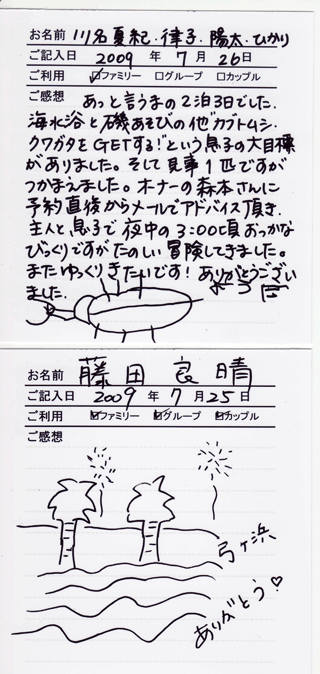 お名前 川名夏紀・律子・陽太・ひかり
ご記入日 2009 年 7 月 26 日
ご利用 ☑ファミリー □グループ □カップル
ご感想 あっと言うまの2泊3日でした。
海水浴と磯あそびの他"カブトムシ・
クワガタをGETする!"という息子の大目標
がありました。そして見事1匹ですが
つかまえました。オーナーの森本さんに
予約直後からメールでアドバイス頂き、
主人と息子で夜中の3:00頃おっかな
びっくりですがたのしい冒険してきました。
またゆっくりきたいです!ありがとうござい
ました。
お名前 藤田良晴
ご記入日 2009 年 7 月 25 日
ご利用 ☑ファミリー ☑グループ ☑カップル
ご感想
弓ヶ浜
ありがとう♡